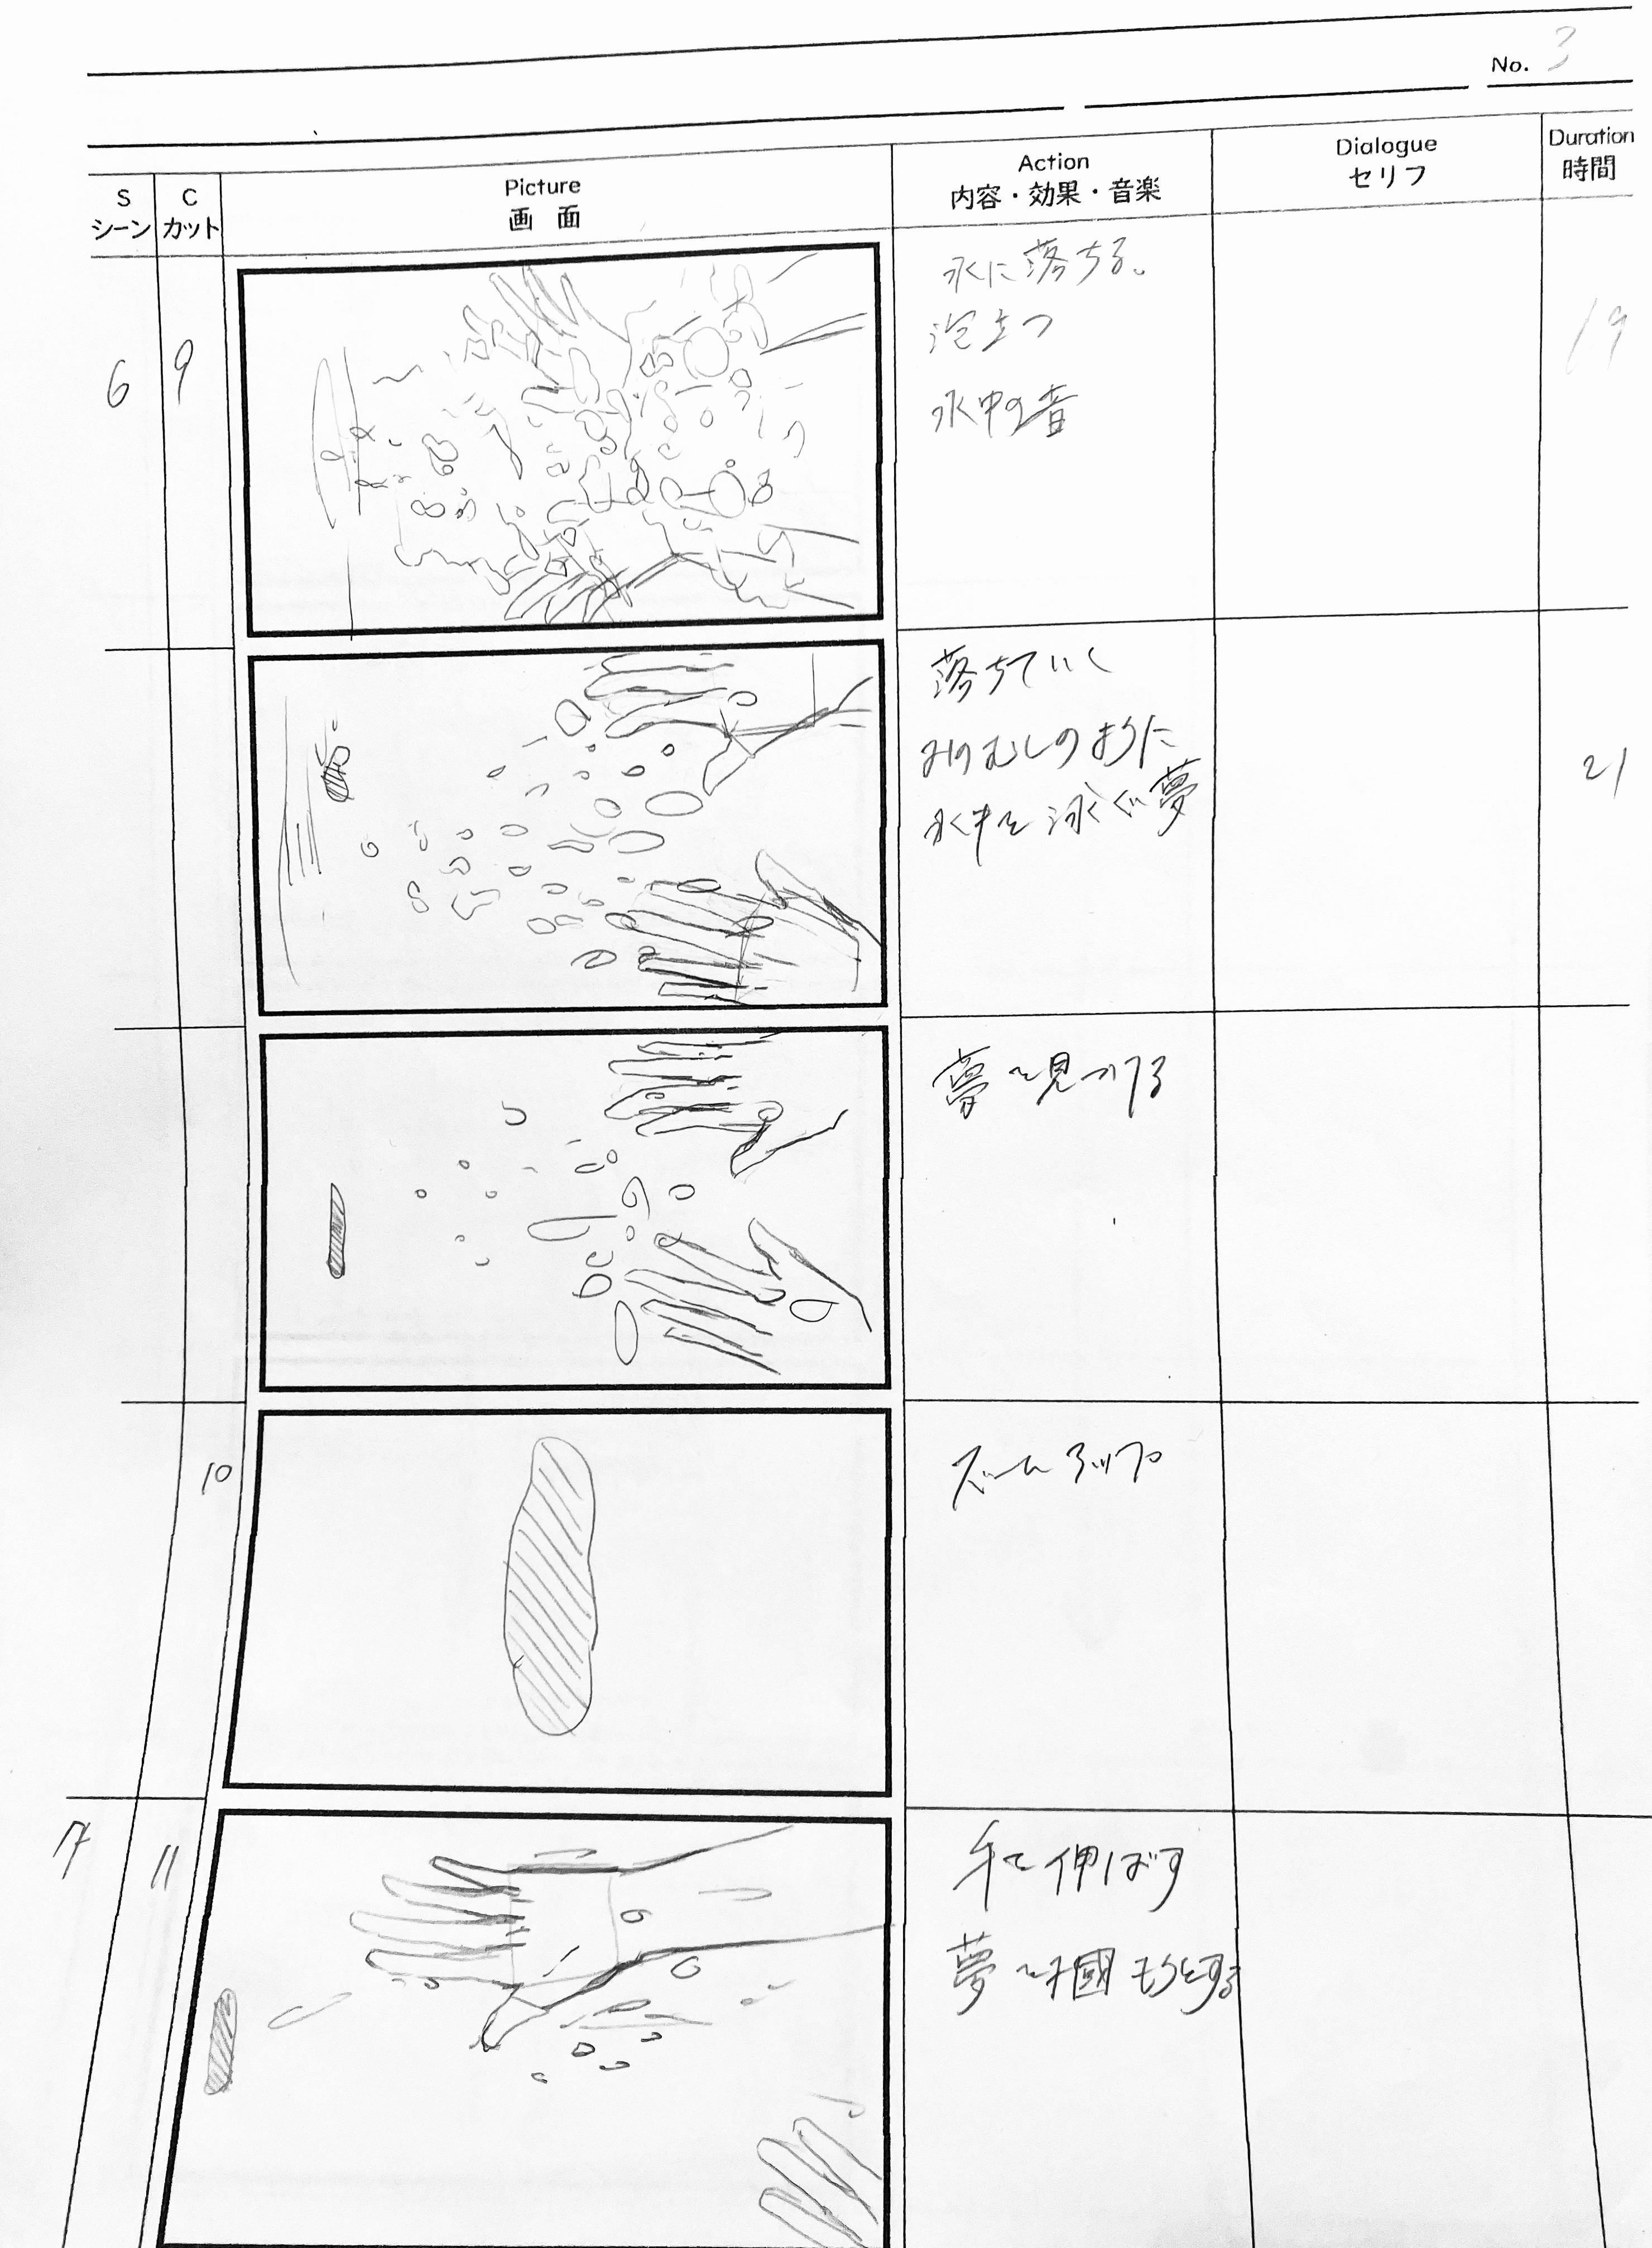 No. 3
S
シーン
C
カット
Picture
画面
Action
内容・効果・音楽
Dialogue
セリフ
Duration
時間
6
9
水に落ちる。
泡立つ
水中の音
19
落ちていく
みのむしのように
水中を泳ぐ夢
21
夢を見つける
10
ズームアップ
7
11
手を伸ばす
夢を掴もうとする